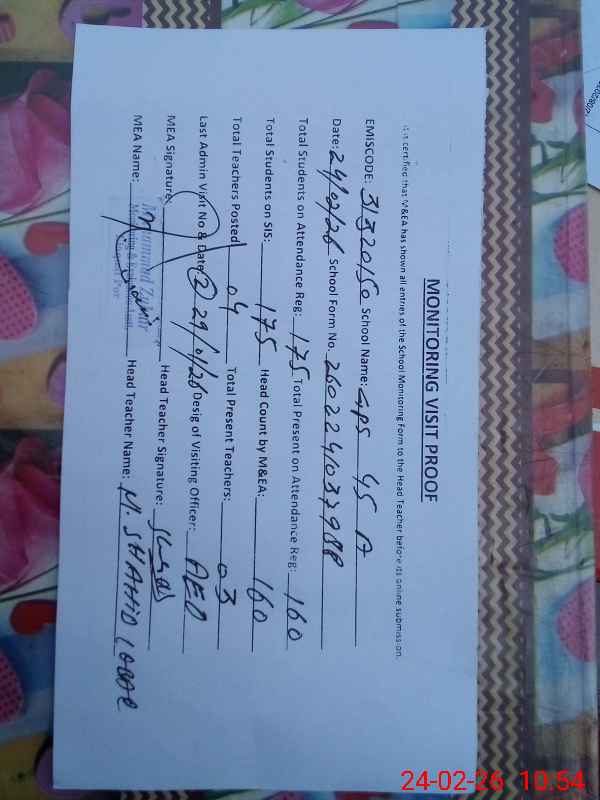 MONITORING VISIT PROOF
It is certified that M&EA has shown all entries of the School Monitoring Form to the Head Teacher before its online submission.
EMISCODE: 31320150 School Name: GPS 45 A
Date: 24/02/26 School Form No. 260224103798P
Total Students on Attendance Reg: 175 Total Present on Attendance Reg: 160
Total Students on SIS: 175 Head Count by M&EA: 160
Total Teachers Posted 04 Total Present Teachers: 03
Last Admin Visit No & Date: 2 29/01/26 Desig of Visiting Officer: AEO
MEA Signature: Head Teacher Signature:
MEA Name: Head Teacher Name: M. SHAHID
24-02-26 10:54